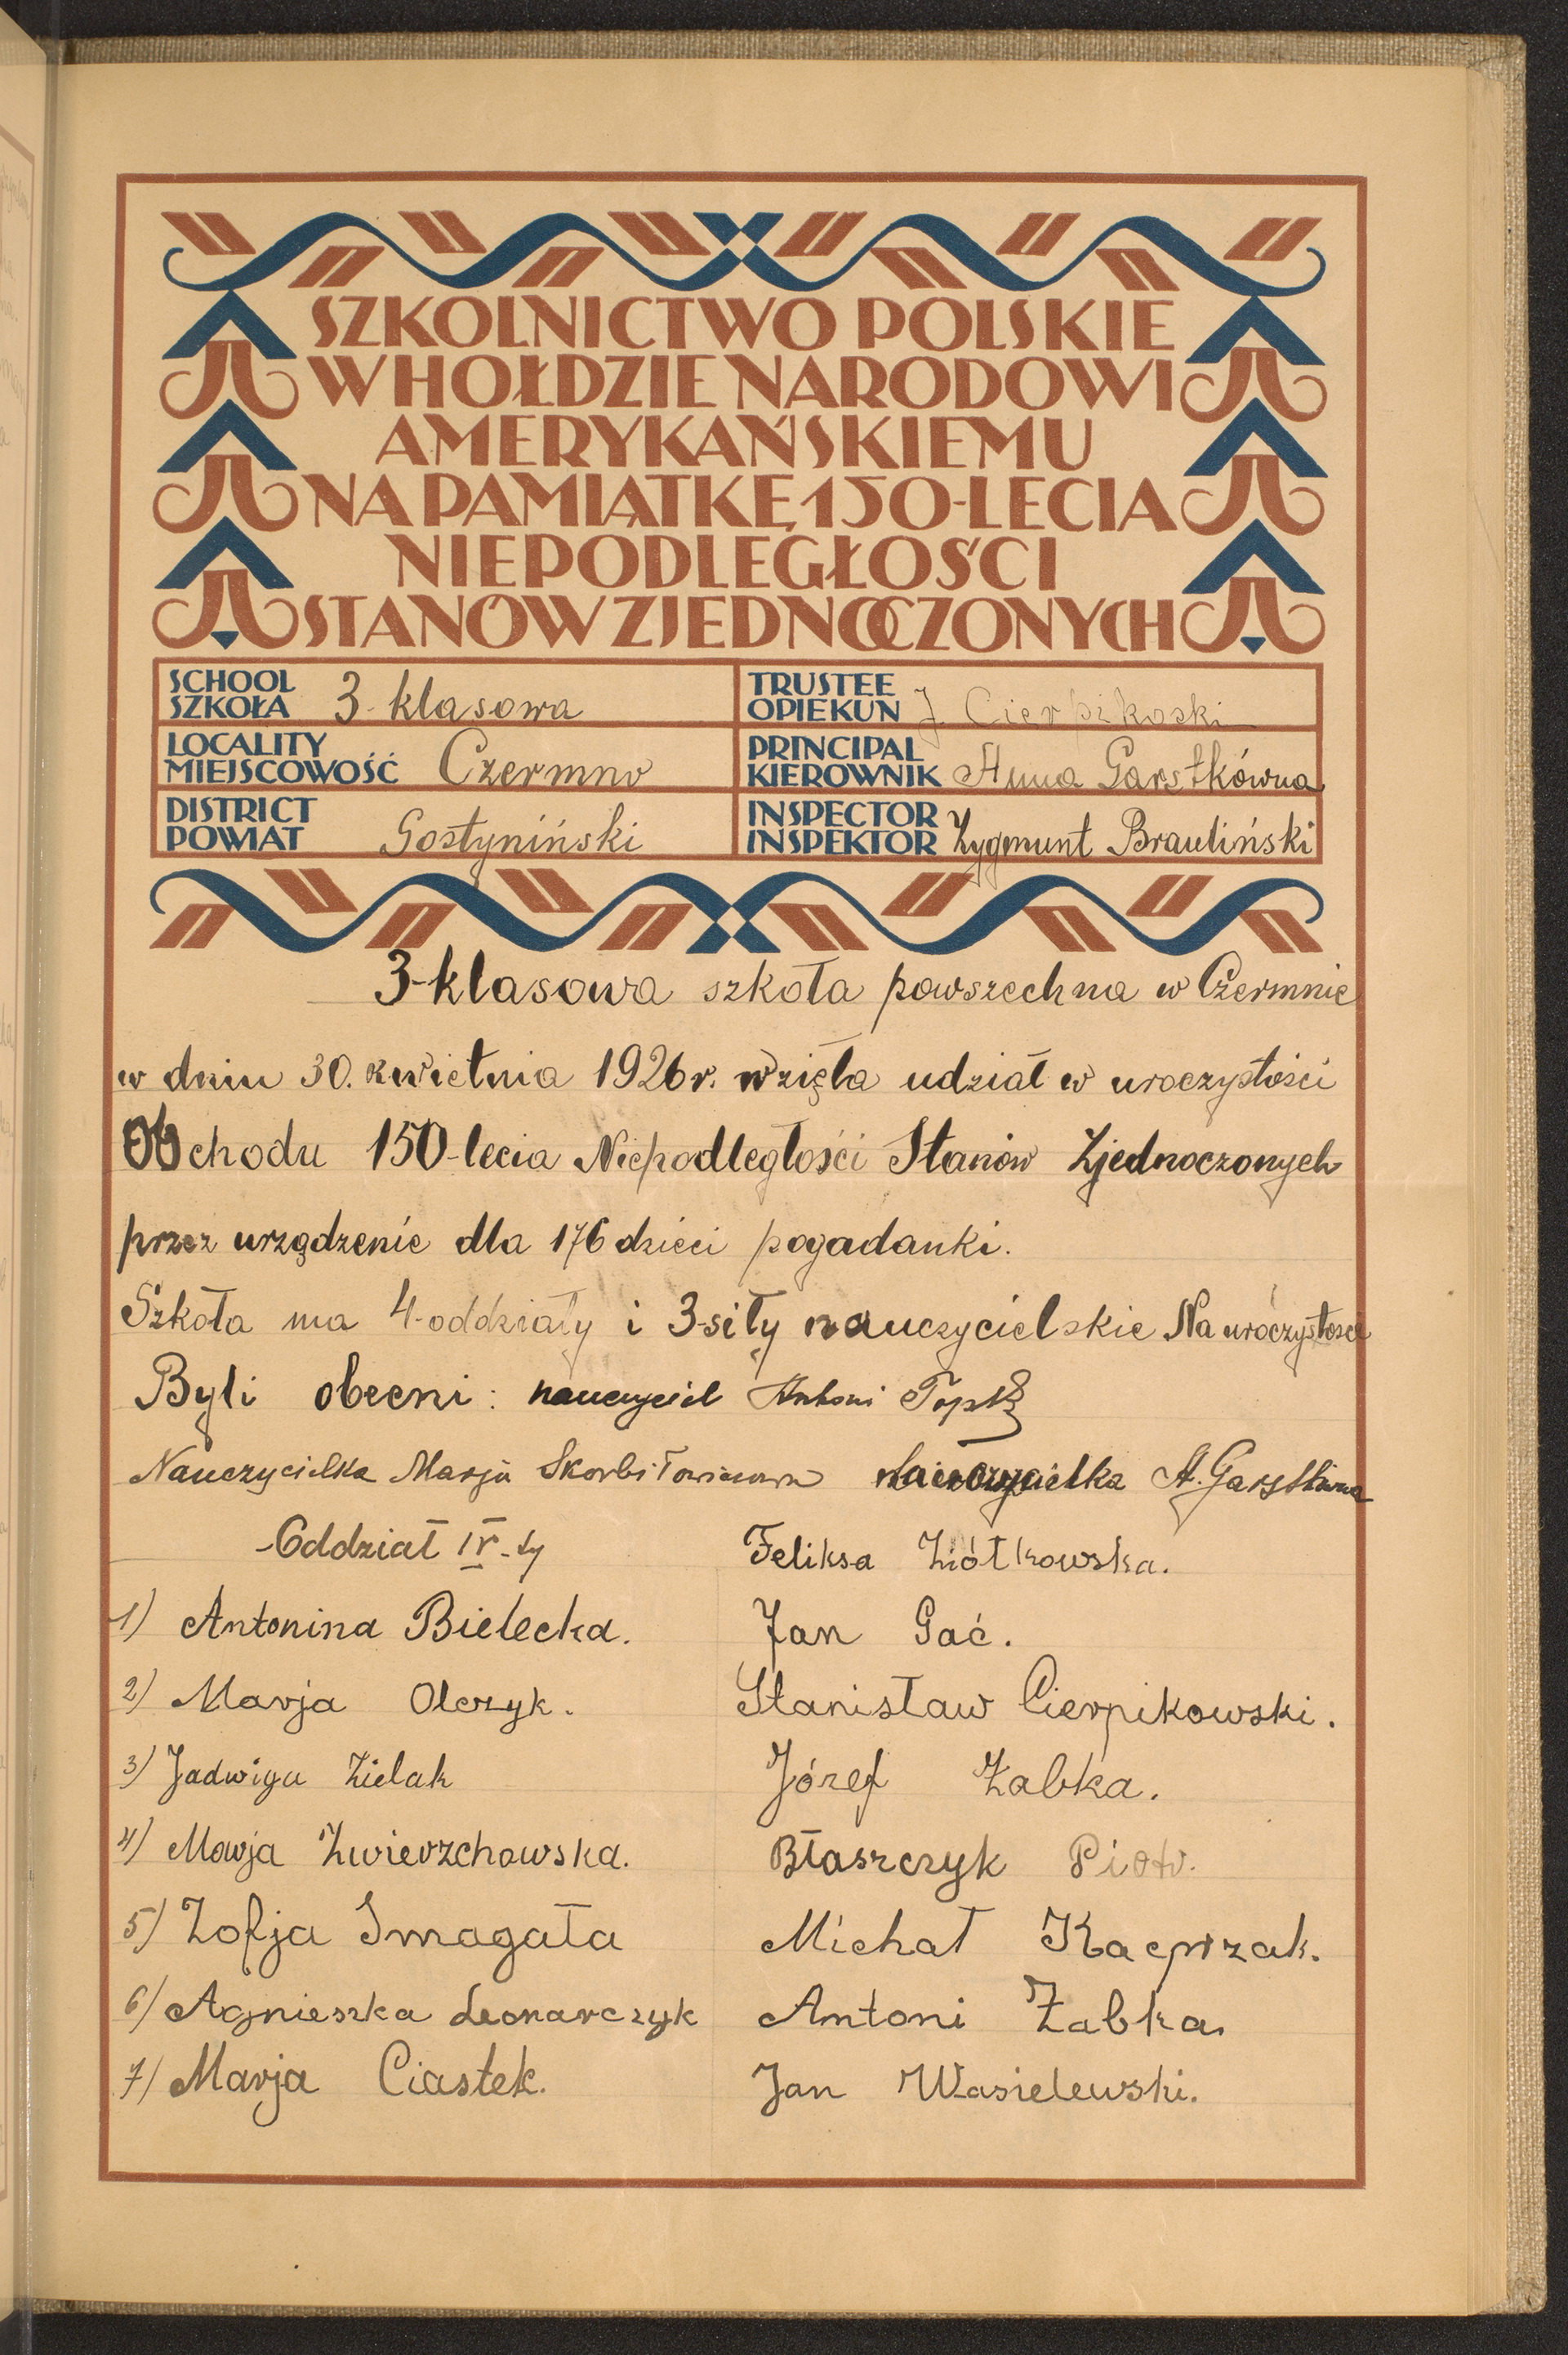 SZKOLNICTWO POLSKIE
W HOŁDZIE NARODOWI
AMERYKAŃSKIEMU
NA PAMIĄTKĘ 150-LECIA
NIEPODLEGŁOŚCI
STANÓW ZJEDNOCZONYCH
SCHOOL
SZKOŁA 3-klasowa
TRUSTEE
OPIEKUN J Cierpikoski
LOCALITY
MIEJSCOWOŚĆ Czermno
PRINCIPAL
KIEROWNIK Anna Garstkówna
DISTRICT
POWIAT Gostyniński
INSPECTOR
INSPEKTOR Zygmunt Brauliński
3-klasowa szkoła powszechna w Czermnie
w dniu 30. kwietnia 1926 r. wzięła udział w uroczystości
Obchodu 150-lecia Niepodległości Stanów Zjednoczonych
przez urządzenie dla 176 dzieci pogadanki.
Szkoła ma 4-oddziały i 3-siły nauczycielskie Na uroczystości
Byli obecni: nauczyciel Antoni
Nauczycielka Marja nauczycielka A.
Oddział IV-ty
1) Antonina Bielecka.
2) Marja Olczyk.
3) Jadwiga Zielak
4) Marja Zwierzchowska.
5) Zofja Smagała
6) Agnieszka Leonarczyk
7) Marja Ciastek.
Feliksa Ziółkowska.
Jan Gać.
Stanisław Cierpikowski.
Józef Żabka.
Błaszczyk Piotr.
Michał Kacprzak.
Antoni Żabka.
Jan Wasielewski.